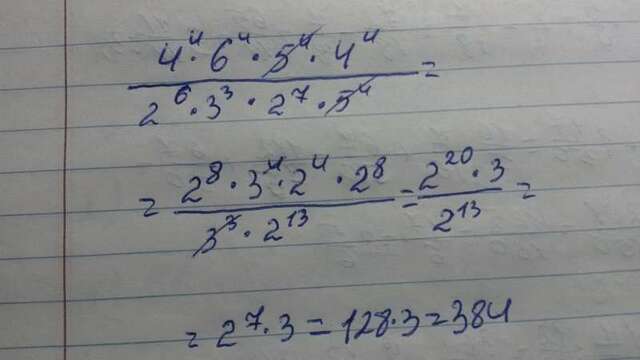 4⁴·6⁴·5⁴·4⁴
2⁶·3³·2⁷·5⁴ =
= 2⁸·3⁴·2⁴·2⁸ = 2²⁰·3 =
3³·2¹³ 2¹³
= 2⁷·3 = 128·3 = 384